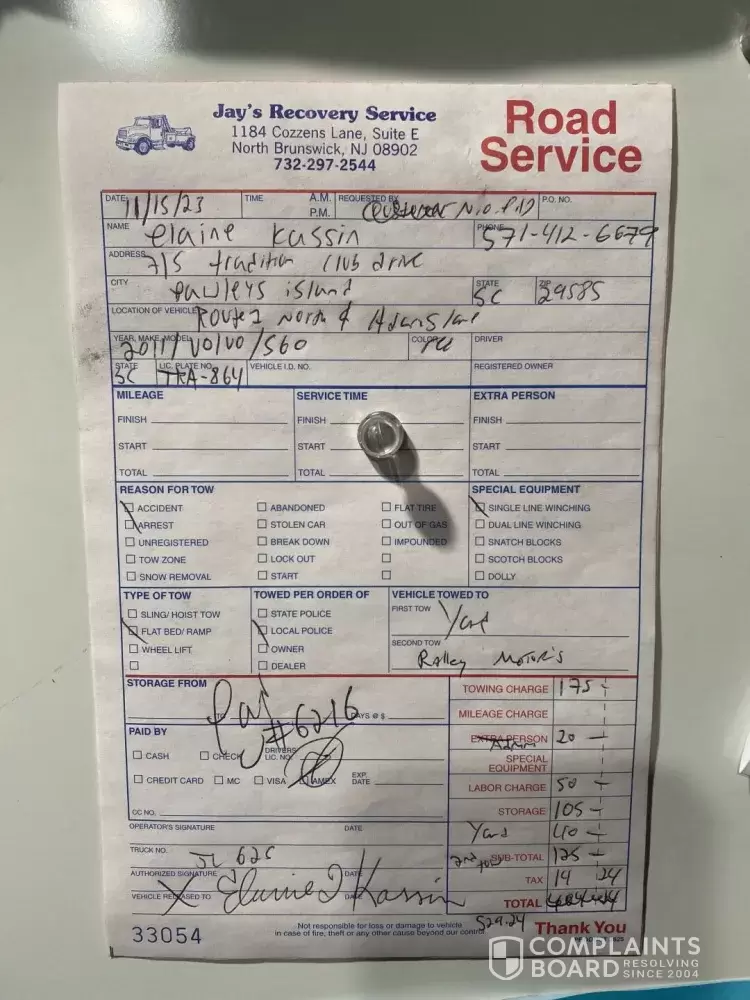 Jay's Recovery Service
1184 Cozzens Lane, Suite E
North Brunswick, NJ 08902
732-297-2544
Road
Service
DATE 11/15/23 TIME A.M. P.M. REQUESTED BY Customer N.O.P.D P.O. NO.
NAME elaine Kassin PHONE 571-412-6679
ADDRESS 715 tradition club drive
CITY pawleys island STATE SC ZIP 29585
LOCATION OF VEHICLE Route 1 North & Adams lane
YEAR, MAKE, MODEL 2011/Volvo/S60 COLOR DRIVER
STATE SC LIC. PLATE NO. TRA-864 VEHICLE I.D. NO. REGISTERED OWNER
MILEAGE SERVICE TIME EXTRA PERSON
FINISH FINISH FINISH
START START START
TOTAL TOTAL TOTAL
REASON FOR TOW SPECIAL EQUIPMENT
ACCIDENT ABANDONED FLAT TIRE SINGLE LINE WINCHING
ARREST STOLEN CAR OUT OF GAS DUAL LINE WINCHING
UNREGISTERED BREAK DOWN IMPOUNDED SNATCH BLOCKS
TOW ZONE LOCK OUT SCOTCH BLOCKS
SNOW REMOVAL START DOLLY
TYPE OF TOW TOWED PER ORDER OF VEHICLE TOWED TO
SLING/ HOIST TOW STATE POLICE FIRST TOW Yard
FLAT BED/ RAMP LOCAL POLICE
WHEEL LIFT OWNER SECOND TOW Motors
DEALER
STORAGE FROM TOWING CHARGE 175 -
#6216 DAYS @ $ MILEAGE CHARGE
PAID BY EXTRA PERSON Admin 20 -
CASH CHECK DRIVERS LIC. NO. SPECIAL EQUIPMENT
CREDIT CARD MC VISA AMEX EXP. DATE LABOR CHARGE 50 -
CC NO. STORAGE 105 -
OPERATOR'S SIGNATURE DATE Yard 40 -
TRUCK NO. 2nd tow SUB-TOTAL 125 -
AUTHORIZED SIGNATURE DATE TAX 14 24
VEHICLE RELEASED TO X Elaine J Kassin DATE TOTAL
529.24
33054
Not responsible for loss or damage to vehicle
in case of fire, theft or any other cause beyond our control.
Thank You
COMPLAINTS
BOARD RESOLVING
SINCE 2004